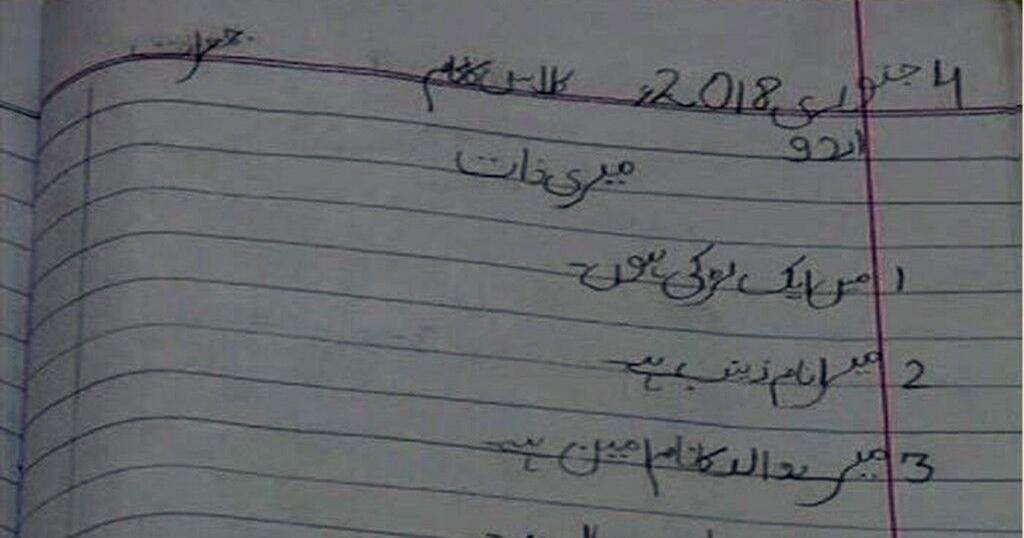 4 جنوری 2018ء کلاس کا کام جمعرات
اردو
میری ذات
1 میں ایک لڑکی ہوں۔
2 میرا نام زینب ہے
3 میرے والد کا نام امین ہے